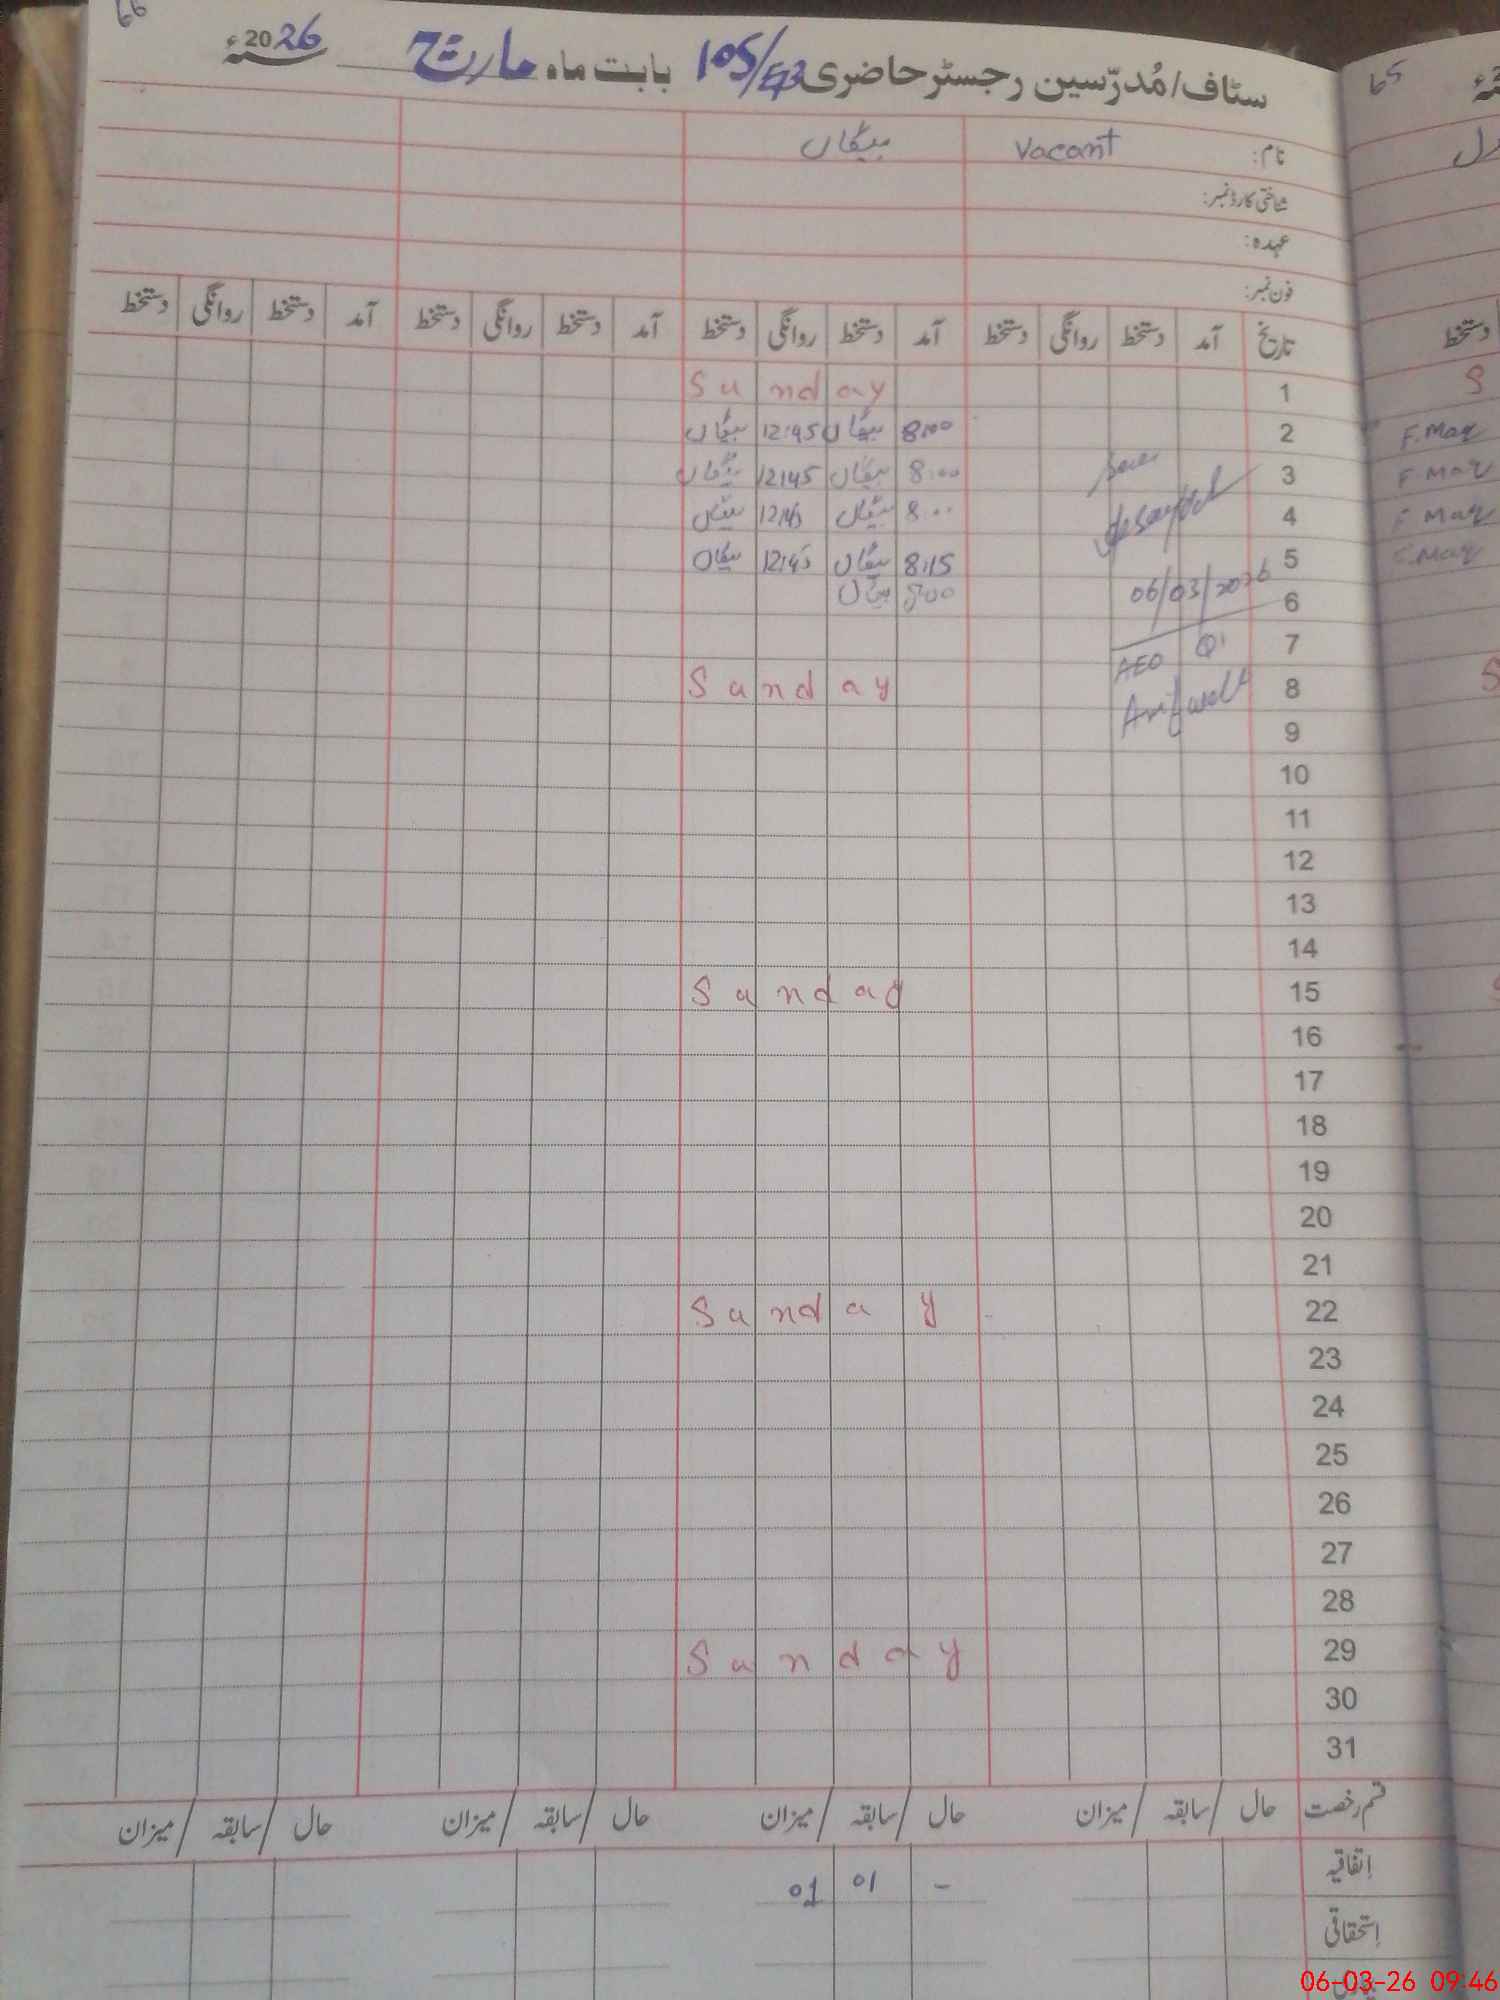 66
سٹاف/مُدرّسین رجسٹر حاضری 105/ بابت ماہ مارچ 2026ء
نام: Vacant بیگاں
شناختی کارڈ نمبر:
عہدہ:
فون نمبر:
تاریخ آمد دستخط روانگی دستخط آمد دستخط روانگی دستخط آمد دستخط روانگی دستخط آمد دستخط روانگی دستخط
1 Sunday
2 8:00 بیگاں 12:45 بیگاں
3 8:00 بیگاں 12:45 بیگاں
4 8:00 بیگاں 12:45 بیگاں
5 8:15 بیگاں 12:45 بیگاں
6 06/03/2026 8:00 بیگاں
7 AEO
8 Sunday
9
10
11
12
13
14
15 Sunday
16
17
18
19
20
21
22 Sunday
23
24
25
26
27
28
29 Sunday
30
31
قسم رخصت حال/سابقہ/میزان حال/سابقہ/میزان حال/سابقہ/میزان حال/سابقہ/میزان
اِتفاقیہ - 01 01
اِستحقاقی
65
دستخط
S
F.Maq
F.Maq
F Maq
F.Maq
S
06-03-26 09:46